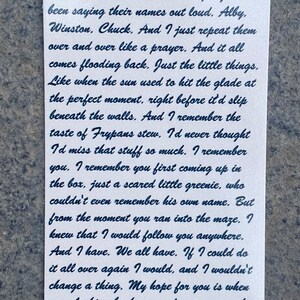 been saying their names out loud. Alby,
Winston, Chuck. And I just repeat them
over and over like a prayer. And it all
comes flooding back. Just the little things.
Like when the sun used to hit the glade at
the perfect moment, right before it'd slip
beneath the walls. And I remember the
taste of Frypans stew. I'd never thought
I'd miss that stuff so much. I remember
you. I remember you first coming up in
the box, just a scared little greenie, who
couldn't even remember his own name. But
from the moment you ran into the maze, I
knew that I would follow you anywhere.
And I have. We all have. If I could do
it all over again I would, and I wouldn't
change a thing. My hope for you is when